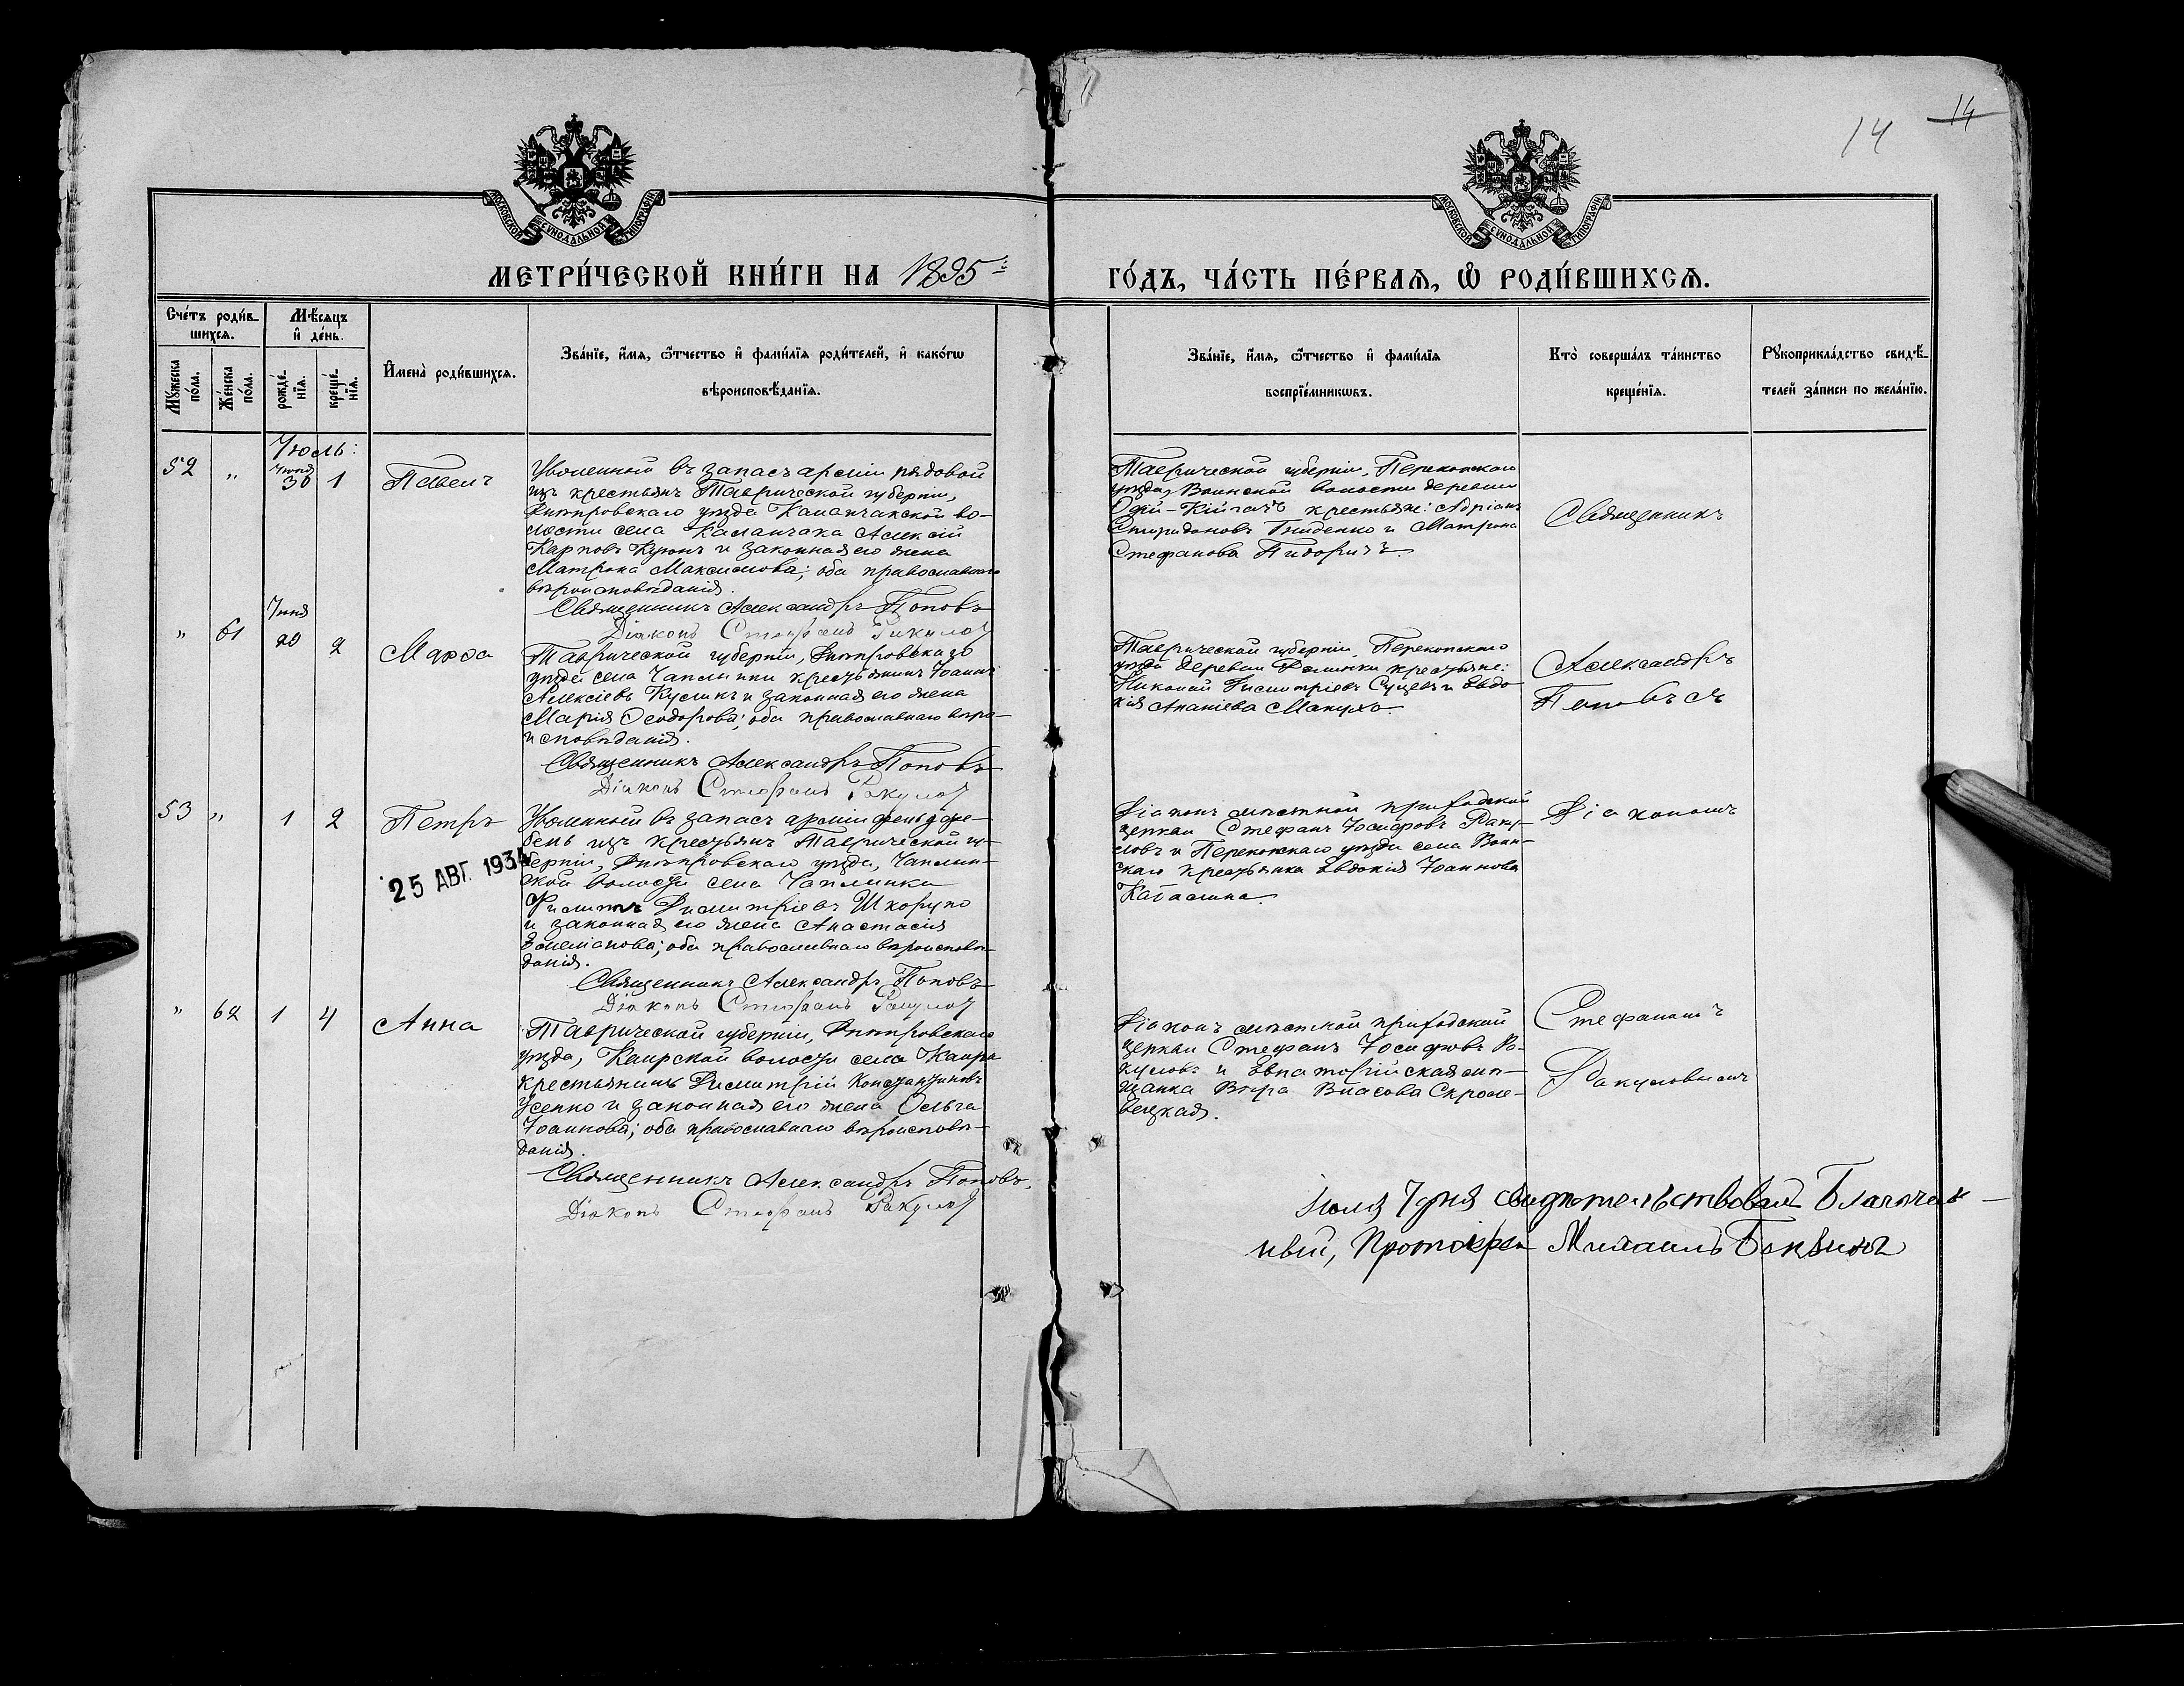 14 14
МОСКОВСКОЙ СѴНОДАЛЬНОЙ ТИПОГРАФІИ
МОСКОВСКОЙ СѴНОДАЛЬНОЙ ТИПОГРАФІИ
МЕТРИ́ЧЕСКОЙ КНИ́ГИ НА 1895 й
ГО́ДЪ, ЧА́СТЬ ПЕ́РВАѦ, Ѽ РОДИ́ВШИХСѦ.
Сче́тъ роди́в-
шихсѧ.
Мѣ́сѧцъ
и҆ де́нь.
Мꙋ́жеска по́ла.
Же́нска по́ла.
рожде́нїѧ.
креще́нїѧ.
И҆мена̀ роди́вшихсѧ.
Зва́нїе, и҆́мѧ, ѻ҆́тчество и҆ фами́лїѧ роди́телей, и҆ како́гѡ
вѣроисповѣ́данїѧ.
Зва́нїе, и҆́мѧ, ѻ҆́тчество и҆ фами́лїѧ
воспрїе́мникѡвъ.
Кто̀ соверша́лъ та́инство
креще́нїѧ.
Рꙋкоприкла́дство свидѣ́-
телей за́писи по жела́нїю.
Іюль:
52 " Іюня 30 1 Павелъ
Уволенный въ запасъ арміи рядовой
изъ крестьянъ Таврической губерніи,
Днѣпровскаго уѣзда Каланчакской во-
лости села Каланчака Алексій
Карповъ и законная его жена
Матрона Максимова; оба православнаго
вѣроисповѣданія.
Священникъ Александръ Поповъ
Діаконъ Стефанъ Ракулов
Таврической губерніи, Перекопскаго
уѣзда, Воинской волости деревни
крестьяне: Адріанъ
Спиридоновъ Гниденко и Матрона
Стефанова
Священникъ
" 61 Іюня 20 2 Марѳа
Таврической губерніи, Днѣпровскаго
уѣзда села Чаплинки крестьянинъ Іоаннъ
Алексіевъ Куликъ и законная его жена
Марія Ѳеодорова; оба православнаго вѣро-
исповѣданія.
Священникъ Александръ Поповъ
Діаконъ Стефанъ Ракулов
Таврической губерніи, Перекопскаго
уѣзда деревни крестьяне:
Николай Димитріевъ и Евдо-
кія Ананіева Макуха.
Александръ
Поповъ съ
53 " 1 2 Петръ
Уволенный въ запасъ арміи фельдфе-
бель изъ крестьянъ Таврической гу-
берніи, Днѣпровскаго уѣзда, Чаплин-
ской волости села Чаплинки
Филиппъ Димитріевъ Шкорупо
и законная его жена Анастасія
оба православнаго вѣроисповѣ-
данія.
Священникъ Александръ Поповъ
Діаконъ Стефанъ Ракулов
25 АВГ. 1934
Діаконъ мѣстной приходской
церкви Стефанъ Іосифовъ Раку-
ловъ и Перекопскаго уѣзда села Воин-
скаго крестьянка Евдокія Іоаннова
Діакономъ
" 62 1 4 Анна
Таврической губерніи, Днѣпровскаго
уѣзда, Каирской волости села Каира
крестьянинъ Димитрій Константиновъ
Усенко и законная его жена Ольга
Іоаннова; оба православнаго вѣроисповѣ-
данія.
Священникъ Александръ Поповъ.
Діаконъ Стефанъ Ракулов
Діаконъ мѣстной приходской
церкви Стефанъ Іосифовъ Ра-
куловъ и Евпаторійская мѣ-
щанка Вѣра Власова Скроме-
вецкая.
Стефаномъ
Ракуловымъ
Іюля 7 дня свидѣтельствовалъ Благочин-
ный, Протоіерей Михаилъ